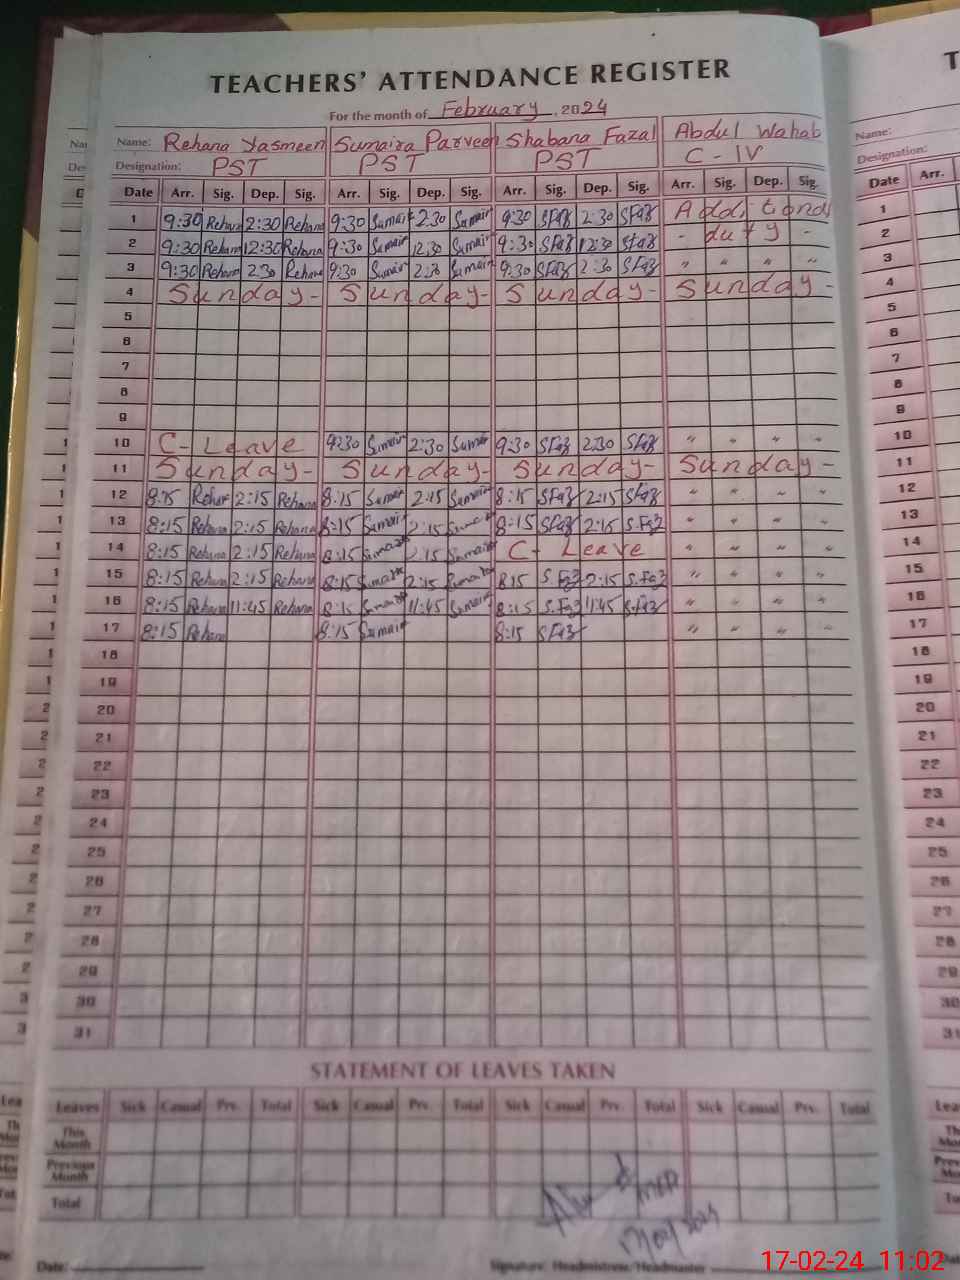 TEACHERS' ATTENDANCE REGISTER
For the month of February, 2024
Name: Rehana Yasmeen Sumaira Parveen Shabana Fazal Abdul Wahab
Designation: PST PST PST C-IV
Date Arr. Sig. Dep. Sig. Arr. Sig. Dep. Sig. Arr. Sig. Dep. Sig. Arr. Sig. Dep. Sig.
1 9:30 Rehana 2:30 Rehana 9:30 Sumair 2:30 Sumair 9:30 SFaz 2:30 SFaz Additional
2 9:30 Rehana 12:30 Rehana 9:30 Sumair 12:30 Sumair 9:30 SFaz 12:30 SFaz - duty -
3 9:30 Rehana 2:30 Rehana 9:30 Sumair 2:30 Sumair 9:30 SFaz 2:30 SFaz " " " "
4 Sunday- Sunday- Sunday- Sunday-
5
6
7
8
9
10 C- Leave 9:30 Sumair 2:30 Sumair 9:30 SFaz 2:30 SFaz " " " "
11 Sunday- Sunday- Sunday- Sunday-
12 8:15 Rehan 2:15 Rehana 8:15 Sumair 2:15 Sumair 8:15 SFaz 2:15 SFaz " " " "
13 8:15 Rehana 2:15 Rehana 8:15 Sumair 2:15 Sumair 8:15 SFaz 2:15 S.Faz " " " "
14 8:15 Rehana 2:15 Rehana 8:15 Sumair 2:15 Sumair C- Leave " " " "
15 8:15 Rehana 2:15 Rehana 8:15 Sumair 2:15 Sumair 8:15 S.Faz 2:15 S.Faz " " " "
16 8:15 Rehana 11:45 Rehana 8:15 Sumair 11:45 Sumair 8:15 S.Faz 11:45 S.Faz " " " "
17 8:15 Rehana 8:15 Sumair 8:15 SFaz " " " "
18
19
20
21
22
23
24
25
26
27
28
29
30
31
STATEMENT OF LEAVES TAKEN
Leaves Sick Casual Prv. Total Sick Casual Prv. Total Sick Casual Prv. Total Sick Casual Prv. Total
This Month
Previous Month
Total
Date: Signature: Headmistress/Headmaster
17-02-24 11:02
Name:
Designation:
Date Arr.
1
2
3
4
5
6
7
8
9
10
11
12
13
14
15
16
17
18
19
20
21
22
23
24
25
26
27
28
29
30
31